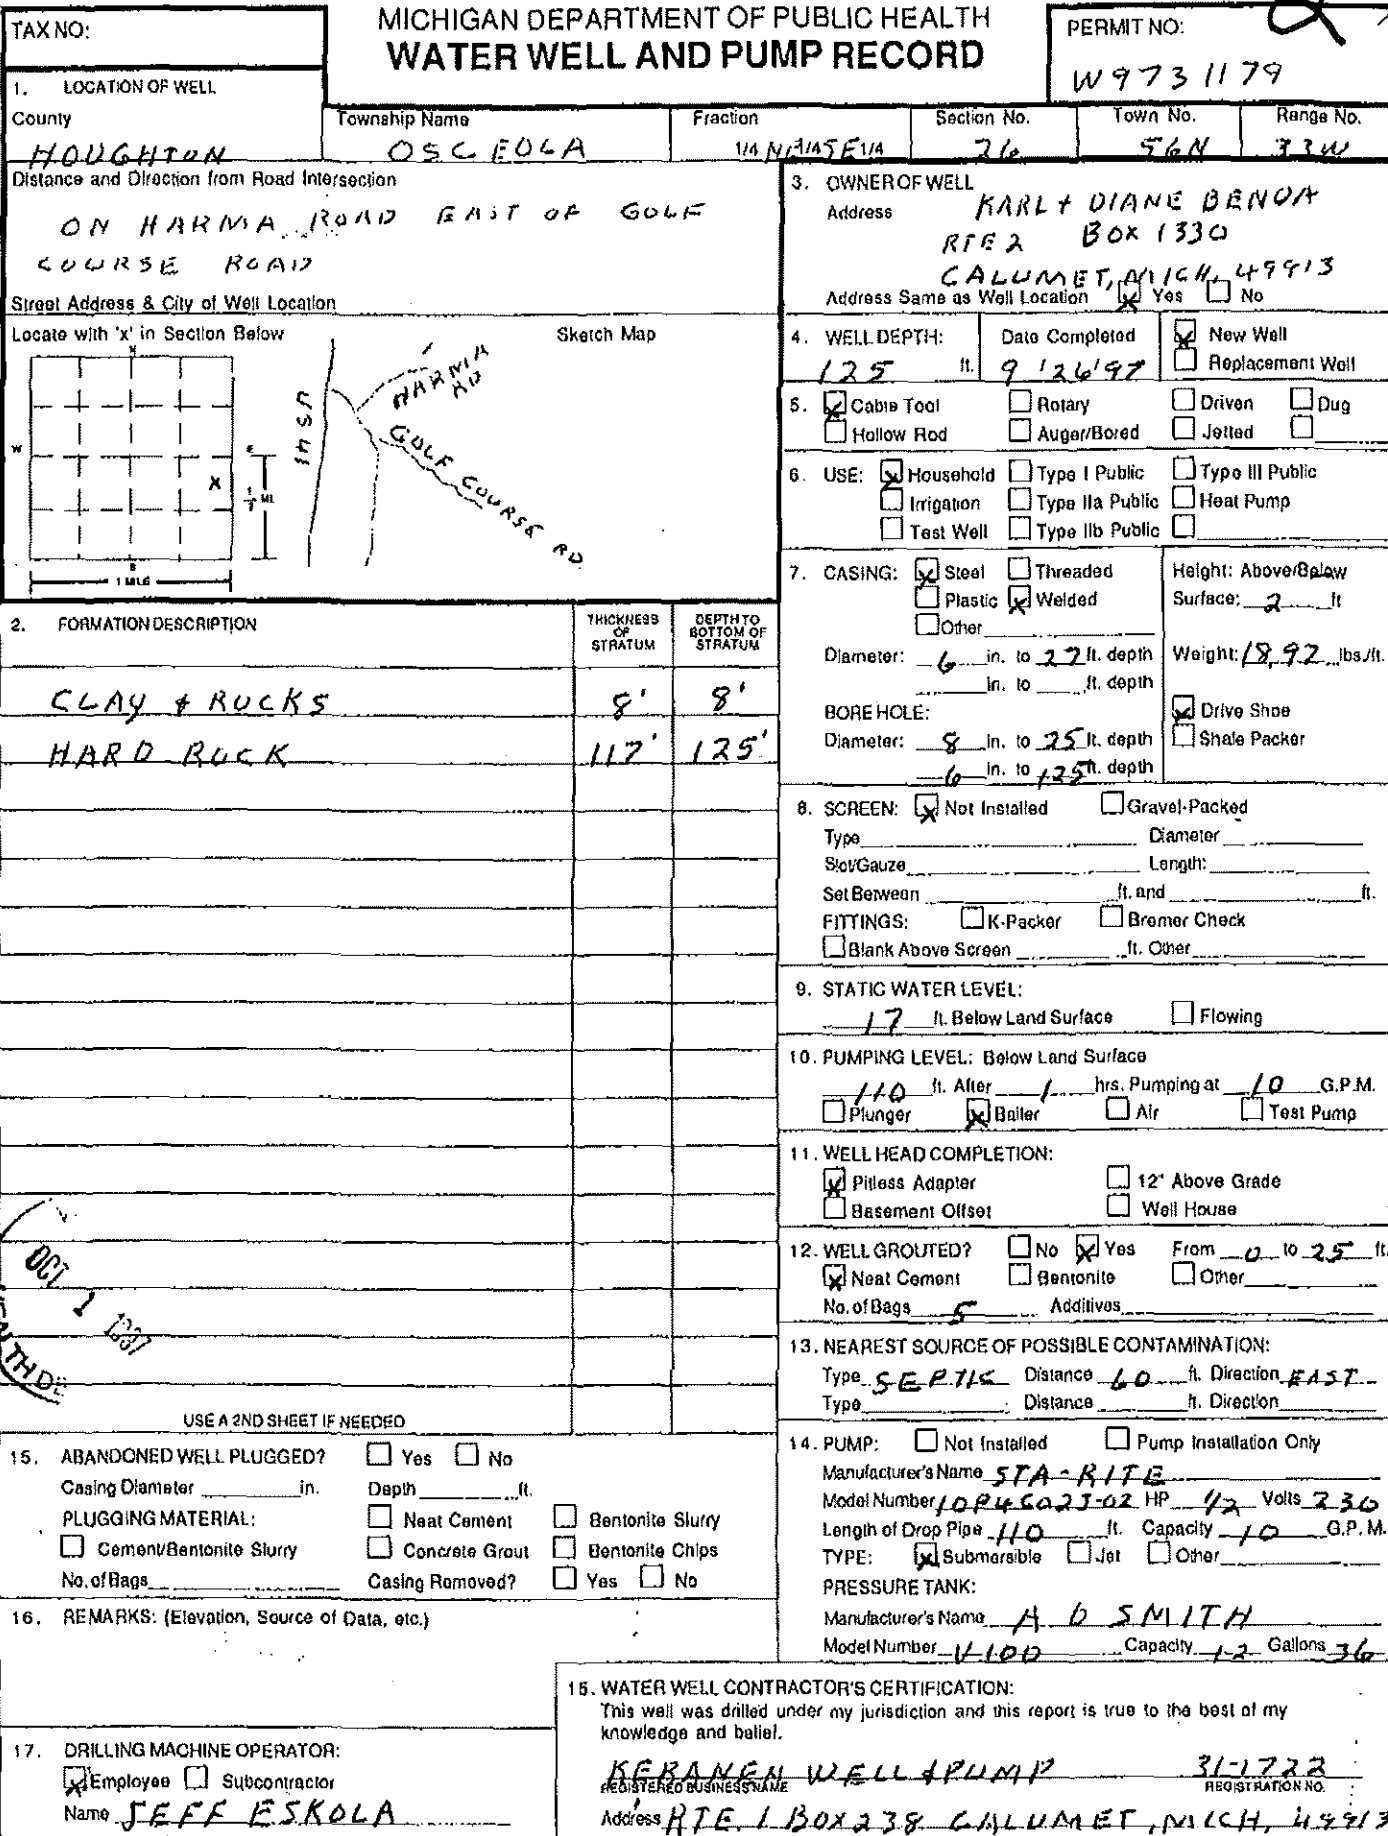 TAX NO:
MICHIGAN DEPARTMENT OF PUBLIC HEALTH
WATER WELL AND PUMP RECORD
PERMIT NO:
W9731179
1. LOCATION OF WELL
County
HOUGHTON
Township Name
OSCEOLA
Fraction
1/4 NE 1/4 SE 1/4
Section No.
26
Town No.
56N
Range No.
33W
Distance and Direction from Road Intersection
ON HARMA ROAD EAST OF GOLF
COURSE ROAD
Street Address & City of Well Location
Locate with 'x' in Section Below
Sketch Map
N
W
E
S
X
1/2 MI.
1 MILE
US 41
HARMA RD
GOLF COURSE RD
3. OWNER OF WELL
Address
KARL + DIANE BENDA
RTE 2 BOX 1330
CALUMET, MICH, 49913
Address Same as Well Location X Yes No
4. WELL DEPTH: 125 ft.
Date Completed 9/26/97
X New Well
Replacement Well
5. X Cable Tool Rotary Driven Dug
Hollow Rod Auger/Bored Jetted
6. USE: X Household Type I Public Type III Public
Irrigation Type IIa Public Heat Pump
Test Well Type IIb Public
7. CASING: X Steel Threaded
Plastic X Welded
Other
Height: Above/Below
Surface: 2 ft
Diameter: 6 in. to 27 ft. depth Weight: 18.97 lbs./ft.
in. to ft. depth
BORE HOLE: X Drive Shoe
Diameter: 8 in. to 25 ft. depth Shale Packer
6 in. to 125 ft. depth
2. FORMATION DESCRIPTION
THICKNESS OF STRATUM
DEPTH TO BOTTOM OF STRATUM
CLAY + ROCKS 8' 8'
HARD ROCK 117' 125'
USE A 2ND SHEET IF NEEDED
OCT 1 1997
8. SCREEN: X Not Installed Gravel-Packed
Type Diameter
Slot/Gauze Length:
Set Between ft. and ft.
FITTINGS: K-Packer Bremer Check
Blank Above Screen ft. Other
9. STATIC WATER LEVEL:
17 ft. Below Land Surface Flowing
10. PUMPING LEVEL: Below Land Surface
110 ft. After 1 hrs. Pumping at 10 G.P.M.
Plunger X Bailer Air Test Pump
11. WELL HEAD COMPLETION:
X Pitless Adapter 12" Above Grade
Basement Offset Well House
12. WELL GROUTED? No X Yes From 0 to 25 ft.
X Neat Cement Bentonite Other
No. of Bags 5 Additives
13. NEAREST SOURCE OF POSSIBLE CONTAMINATION:
Type SEPTIC Distance 60 ft. Direction EAST
Type Distance ft. Direction
14. PUMP: Not Installed Pump Installation Only
Manufacturer's Name STA-RITE
Model Number 10P4S02J-02 HP 1/2 Volts 230
Length of Drop Pipe 110 ft. Capacity 10 G.P.M.
TYPE: X Submersible Jet Other
PRESSURE TANK:
Manufacturer's Name A O SMITH
Model Number V-100 Capacity 12 Gallons 36
15. ABANDONED WELL PLUGGED? Yes No
Casing Diameter in. Depth ft.
PLUGGING MATERIAL: Neat Cement Bentonite Slurry
Cement/Bentonite Slurry Concrete Grout Bentonite Chips
No. of Bags Casing Removed? Yes No
16. REMARKS: (Elevation, Source of Data, etc.)
17. DRILLING MACHINE OPERATOR:
X Employee Subcontractor
Name JEFF ESKOLA
18. WATER WELL CONTRACTOR'S CERTIFICATION:
This well was drilled under my jurisdiction and this report is true to the best of my
knowledge and belief.
KERANEN WELL & PUMP 31-1722
REGISTERED BUSINESS NAME REGISTRATION NO.
Address RTE. 1 BOX 238 CALUMET, MICH, 49913